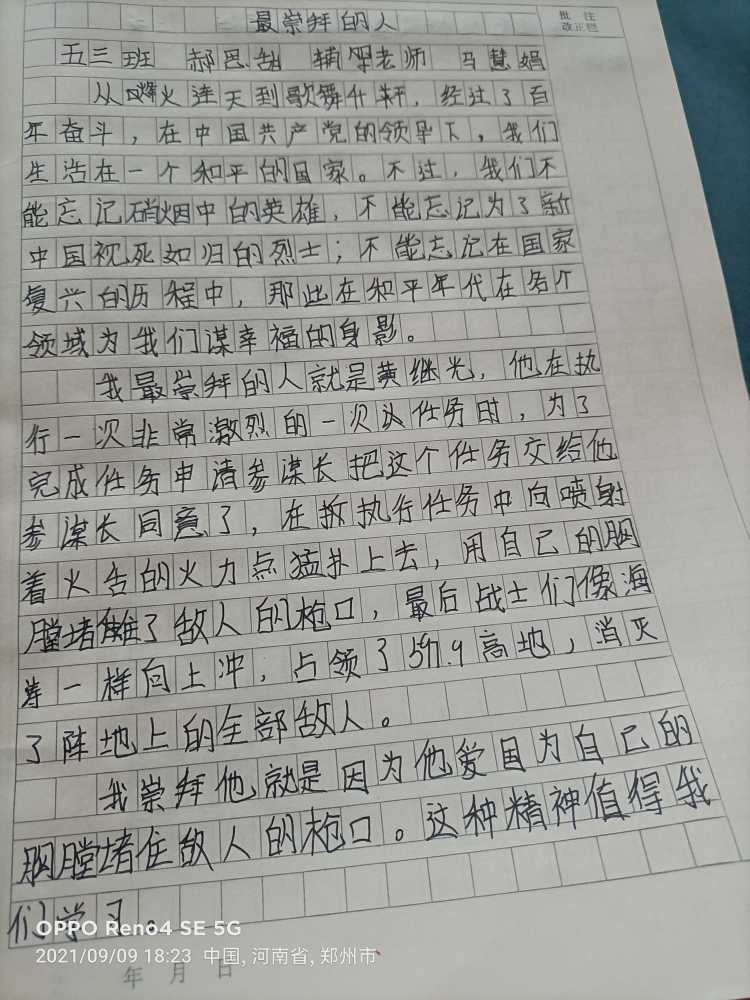 最崇拜的人
批注
改正栏
五三班 郝思甜 辅导老师 马慧娟
从炮火连天到歌舞升平，经过了百
年奋斗，在中国共产党的领导下，我们
生活在一个和平的国家。不过，我们不
能忘记硝烟中的英雄，不能忘记为了新
中国视死如归的烈士；不能忘记在国家
复兴的历程中，那些在和平年代在各个
领域为我们谋幸福的身影。
我最崇拜的人就是黄继光，他在执
行一次非常激烈的一次任务时，为了
完成任务申请参谋长把这个任务交给他
参谋长同意了，在执行任务中向喷射
着火舌的火力点猛扑上去，用自己的胸
膛堵住了敌人的枪口，最后战士们像海
一样向上冲，占领了597.9高地，消灭
了阵地上的全部敌人。
我崇拜他就是因为他爱国为自己的
胸膛堵住敌人的枪口。这种精神值得我
们学习。
OPPO Reno4 SE 5G
2021/09/09 18:23 中国,河南省,郑州市
年 月 日